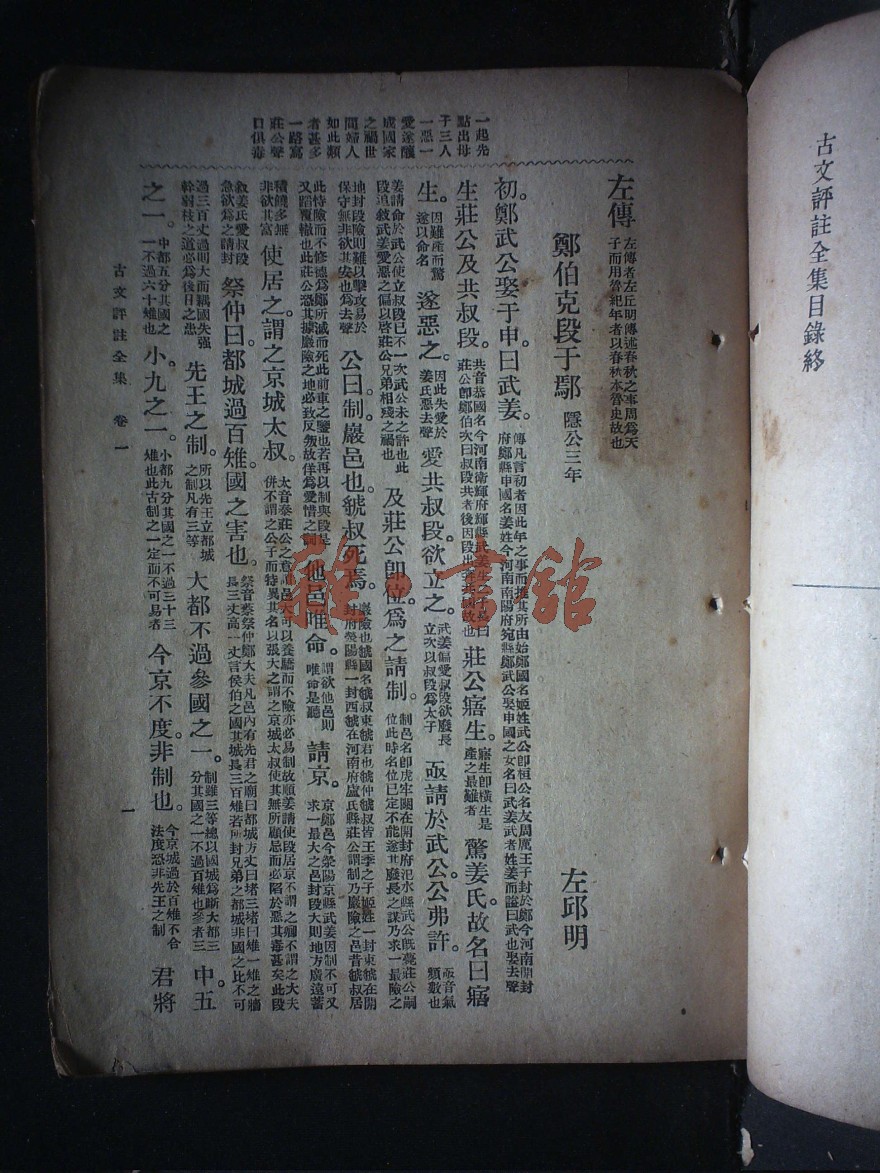 古文評註全集目錄終
一起先
點出母
子三人
一惡一
愛遂釀
成國家
之禍世
間婦人
如此類
者甚多
一路寫
莊公聲
口俱毒
左傳 左傳者左丘明傳述春秋之事周爲天
子而用魯紀年者以春秋本魯史故也
鄭伯克段于鄢 隱公三年 左邱明
初。鄭武公娶于申。曰武姜。傳凡言初者因此年之事而推其所由始鄭國名姬姓武公卽桓公名友周厲王子封於鄭今河南開封
府鄭縣申國名姜姓今河南南陽府宛縣鄭武公娶申國之女名曰武姜武者姓姜而諡曰武也娶去聲
生莊公及共叔段。共音恭國名今河南衛輝府輝縣武姜生子長曰
莊公卽鄭伯次曰叔段共者後因段出奔共國故也 莊公寤生。寤生卽橫生是
產之最難者 驚姜氏。故名曰寤
生。因難產而驚
遂以命名 遂惡之。因此失愛於
姜氏惡去聲 愛共叔段。欲立之。武姜偏愛叔段欲廢長
立次以叔段爲太子 亟請於武公。公弗許。亟音氣
頻數也
姜請命於武公使立叔段已不一次武公未之許也此
段追敘武姜愛惡之偏以啓莊公兄弟相殘之禍也 及莊公卽位。爲之請制。制邑名卽虎牢關在開封府汜水縣武公旣薨莊公嗣
位此時名位已定不能遂其廢長之謀乃求一最險之
地封段險則難以擊攻易於
保守無非欲其安也爲去聲 公曰。制。巖邑也。虢叔死焉。巖險也虢國名虢叔東虢君也虢仲虢叔皆王季之子姬姓一封東虢在開
封府滎陽縣一封西虢在河南府盧氏縣莊公謂制乃嚴險之邑昔虢叔居
此恃險而不修德爲鄭所滅而死此前車之鑒也若再以制與段是
又蹈覆轍也此莊公恐其據嚴險之地必致反叛故佯爲愛惜之詞 他邑唯命。謂欲他邑則
唯命是聽 請京。京鄭邑今滎陽京縣武姜因制不可又
求一最大之邑封段大則地方廣遠蓄
積饒多無
非欲其富 使居之。謂之京城太叔。
太音泰莊公之意謂邑大可以養驕而不險亦必易制故順姜請使段居京不謂之
併不謂之公子而特異其名以張大之謂之京城太叔使其無所顧忌而必陷於惡其毒甚矣此段
敘姜氏愛叔段
急欲爲之請封 祭仲曰。都城過百雉。國之害也。祭音蔡祭仲鄭大夫凡邑內有先君之廟曰都城方丈曰堵三堵曰雉一雉之牆
長三丈高一丈言侯伯之國其城長三百雉若所封兄弟之都城非國之比不可
過三百丈過則大而耦國失强
幹弱枝之道必爲後日之患 先王之制。所以先王立都城
之制凡有三等 大都不過參國之一。制雖三等總以國城爲斷大都三
分其國之一不過百雉也參者三 中。五
之一。中都五分其國之
一不過六十雉也 小。九之一。小都九分其國之一不過三十三
雉也此古制之一定而不可易者 今京不度。非制也。今京城過於百雉不合
法度恐非先王之制 君將
古文評註全集 卷一 一
雜·書館